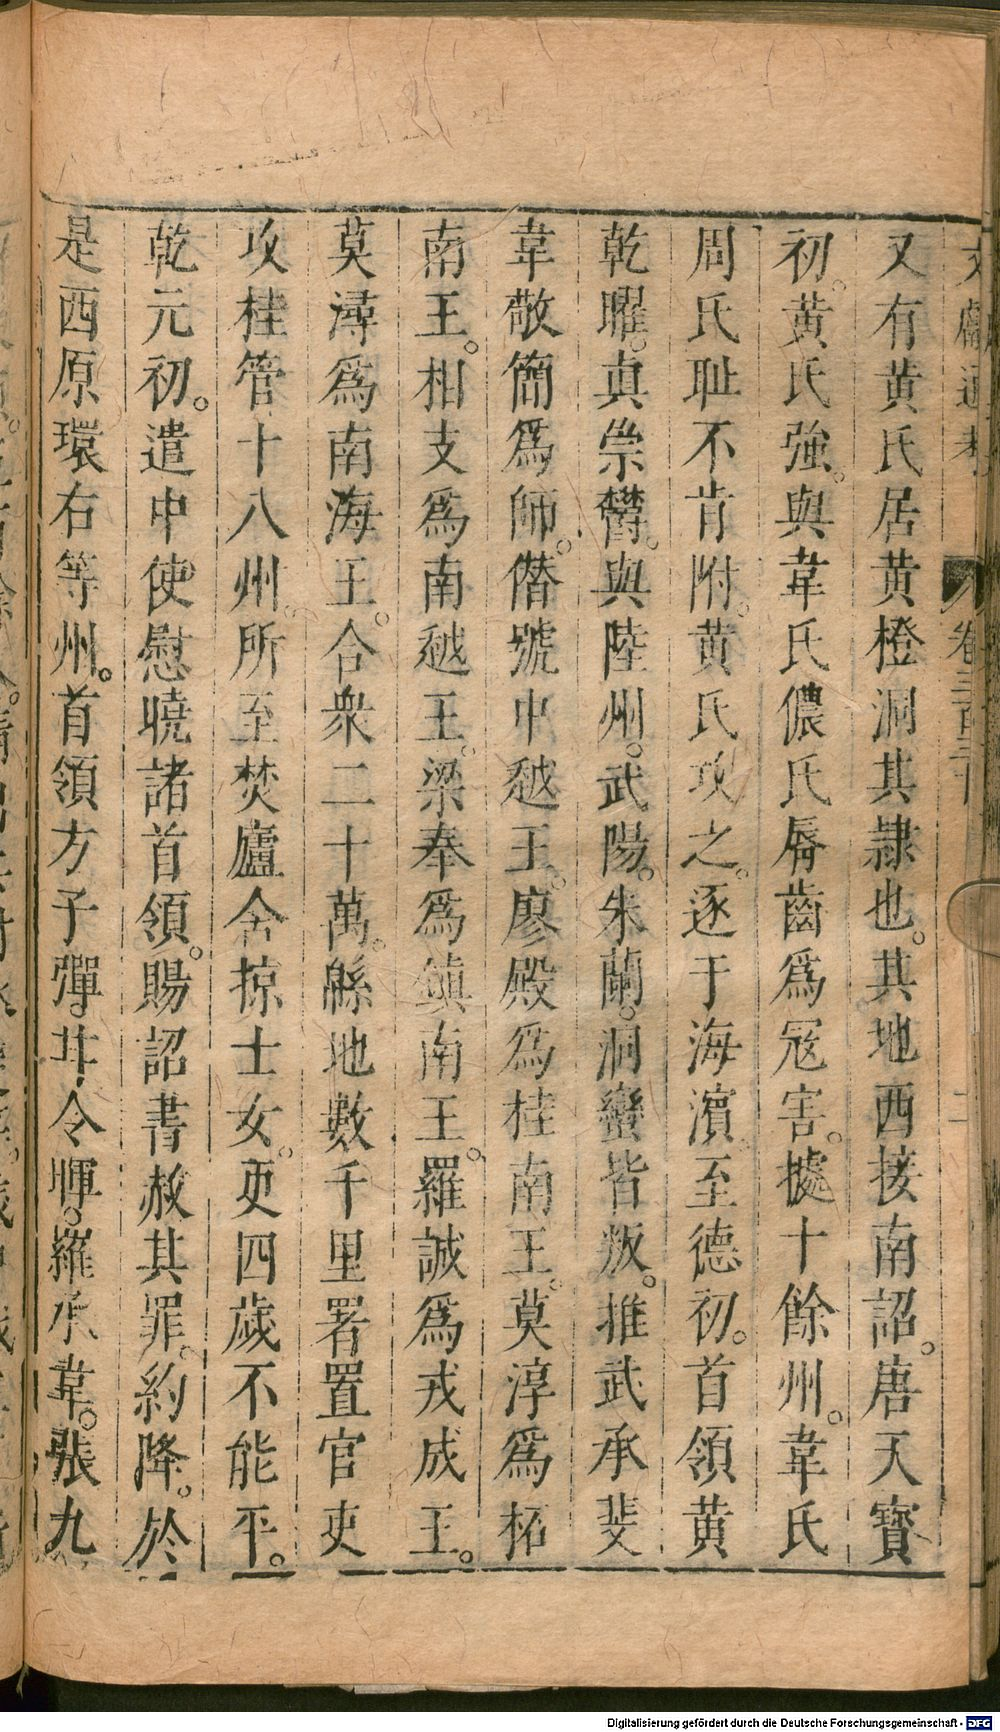 文獻通考 卷三百三十 二
又有黄氏居黄橙洞其隷也。其地西接南詔。唐天寳
初。黄氏強。與韋氏儂氏脣齒爲冦害。㨿十餘州。韋氏
周氏耻不肯附。黄氏攻之。逐于海濵。至德初。首領黄
乾曜。眞崇欝。與陸州。武陽。朱蘭。洞蠻皆叛。推武承斐
韋敬簡爲師。僭號中越王。廖殿爲桂南王。莫淳爲柘
南王。相支爲南越王。梁奉爲鎮南王。羅誠爲戎成王。
莫潯爲南海王。合衆二十萬。緜地數千里。署置官吏
攻桂管十八州。所至焚廬舍掠士女。更四歲不能平。
乾元初。遣中使慰曉諸首領。賜詔書赦其罪。約降。於
是西原環右等州。首領方子彈。甘令暉。羅承韋。張九
Digitalisierung gefördert durch die Deutsche Forschungsgemeinschaft - DFG